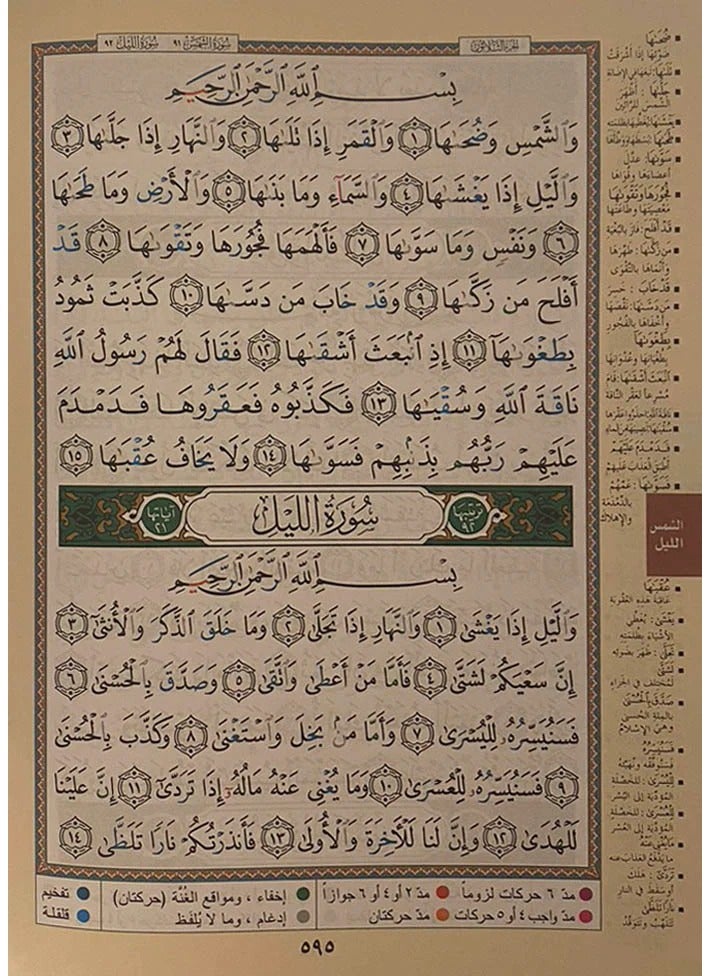 الجزء الثلاثون
سورة الشمس ٩١
سورة الليل ٩٢
بِسْمِ اللَّهِ الرَّحْمَٰنِ الرَّحِيمِ
وَالشَّمْسِ وَضُحَىٰهَا ١ وَالْقَمَرِ إِذَا تَلَىٰهَا ٢ وَالنَّهَارِ إِذَا جَلَّىٰهَا ٣
وَاللَّيْلِ إِذَا يَغْشَىٰهَا ٤ وَالسَّمَاءِ وَمَا بَنَىٰهَا ٥ وَالْأَرْضِ وَمَا طَحَىٰهَا
٦ وَنَفْسٍ وَمَا سَوَّىٰهَا ٧ فَأَلْهَمَهَا فُجُورَهَا وَتَقْوَىٰهَا ٨ قَدْ
أَفْلَحَ مَن زَكَّىٰهَا ٩ وَقَدْ خَابَ مَن دَسَّىٰهَا ١٠ كَذَّبَتْ ثَمُودُ
بِطَغْوَىٰهَا ١١ إِذِ انبَعَثَ أَشْقَىٰهَا ١٢ فَقَالَ لَهُمْ رَسُولُ اللَّهِ
نَاقَةَ اللَّهِ وَسُقْيَٰهَا ١٣ فَكَذَّبُوهُ فَعَقَرُوهَا فَدَمْدَمَ
عَلَيْهِمْ رَبُّهُم بِذَنبِهِمْ فَسَوَّىٰهَا ١٤ وَلَا يَخَافُ عُقْبَٰهَا ١٥
ترتيبها ٩٢
سُورَةُ اللَّيْلِ
آياتها ٢١
بِسْمِ اللَّهِ الرَّحْمَٰنِ الرَّحِيمِ
وَاللَّيْلِ إِذَا يَغْشَىٰ ١ وَالنَّهَارِ إِذَا تَجَلَّىٰ ٢ وَمَا خَلَقَ الذَّكَرَ وَالْأُنثَىٰ ٣
إِنَّ سَعْيَكُمْ لَشَتَّىٰ ٤ فَأَمَّا مَنْ أَعْطَىٰ وَاتَّقَىٰ ٥ وَصَدَّقَ بِالْحُسْنَىٰ ٦
فَسَنُيَسِّرُهُ لِلْيُسْرَىٰ ٧ وَأَمَّا مَن بَخِلَ وَاسْتَغْنَىٰ ٨ وَكَذَّبَ بِالْحُسْنَىٰ
٩ فَسَنُيَسِّرُهُ لِلْعُسْرَىٰ ١٠ وَمَا يُغْنِي عَنْهُ مَالُهُ إِذَا تَرَدَّىٰ ١١ إِنَّ عَلَيْنَا
لَلْهُدَىٰ ١٢ وَإِنَّ لَنَا لَلْآخِرَةَ وَالْأُولَىٰ ١٣ فَأَنذَرْتُكُمْ نَارًا تَلَظَّىٰ ١٤
ضُحَىٰهَا
ضوئها إذا أشرقت
تَلَىٰهَا: تبعها في الإضاءة
جَلَّىٰهَا: أظهر
الشمس للرائين
يَغْشَىٰهَا: يغطيها بظلمته
طَحَىٰهَا: بسطها ووطأها
سَوَّىٰهَا: عدل
أعضاءها وقواها
فُجُورَهَا وَتَقْوَىٰهَا
معصيتها وطاعتها
قَدْ أَفْلَحَ: فاز بالبغية
مَن زَكَّىٰهَا: طهرها
وأنماها بالتقوى
قَدْ خَابَ: خسر
مَن دَسَّىٰهَا: نقصها
وأخفاها بالفجور
بِطَغْوَىٰهَا
بطغيانها وعدوانها
انبَعَثَ أَشْقَىٰهَا: قام
مسرعا لعقر الناقة
نَاقَةَ اللَّهِ: احذروا عقرها
سُقْيَٰهَا: نصيبها من الماء
فَدَمْدَمَ عَلَيْهِمْ
أطبق العذاب عليهم
فَسَوَّىٰهَا: عمهم
بالدمدمة
والإهلاك
الشمس
الليل
عُقْبَٰهَا
عاقبة هذه العقوبة
يَغْشَىٰ: يغطي
الأشياء بظلمته
تَجَلَّىٰ: ظهر بضوئه
لَشَتَّىٰ
لمختلف في الجزاء
صَدَّقَ بِالْحُسْنَىٰ
بالملة الحسنى
وهي الإسلام
فَسَنُيَسِّرُهُ
فسنوفقه ونهيئه
لِلْيُسْرَىٰ: للخصلة
المؤدية إلى اليسر
لِلْعُسْرَىٰ: للخصلة
المؤدية إلى العسر
مَا يُغْنِي عَنْهُ
ما يدفع العذاب عنه
تَرَدَّىٰ: هلك
أو سقط في النار
نَارًا تَلَظَّىٰ
تتلهب وتتوقد
مدّ ٦ حركات لزوماً
مدّ ٢ أو ٤ أو ٦ جوازاً
إخفاء ، ومواقع الغُنَّة (حركتان)
تفخيم
مدّ واجب ٤ أو ٥ حركات
مدّ حركتان
إدغام ، وما لا يُلفَظ
قلقلة
٥٩٥